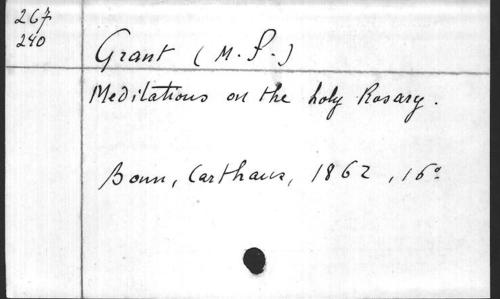 267
240
Grant (M. P.)
Meditations on the holy Rosary.
Bonn, Carthaus, 1862, 16°